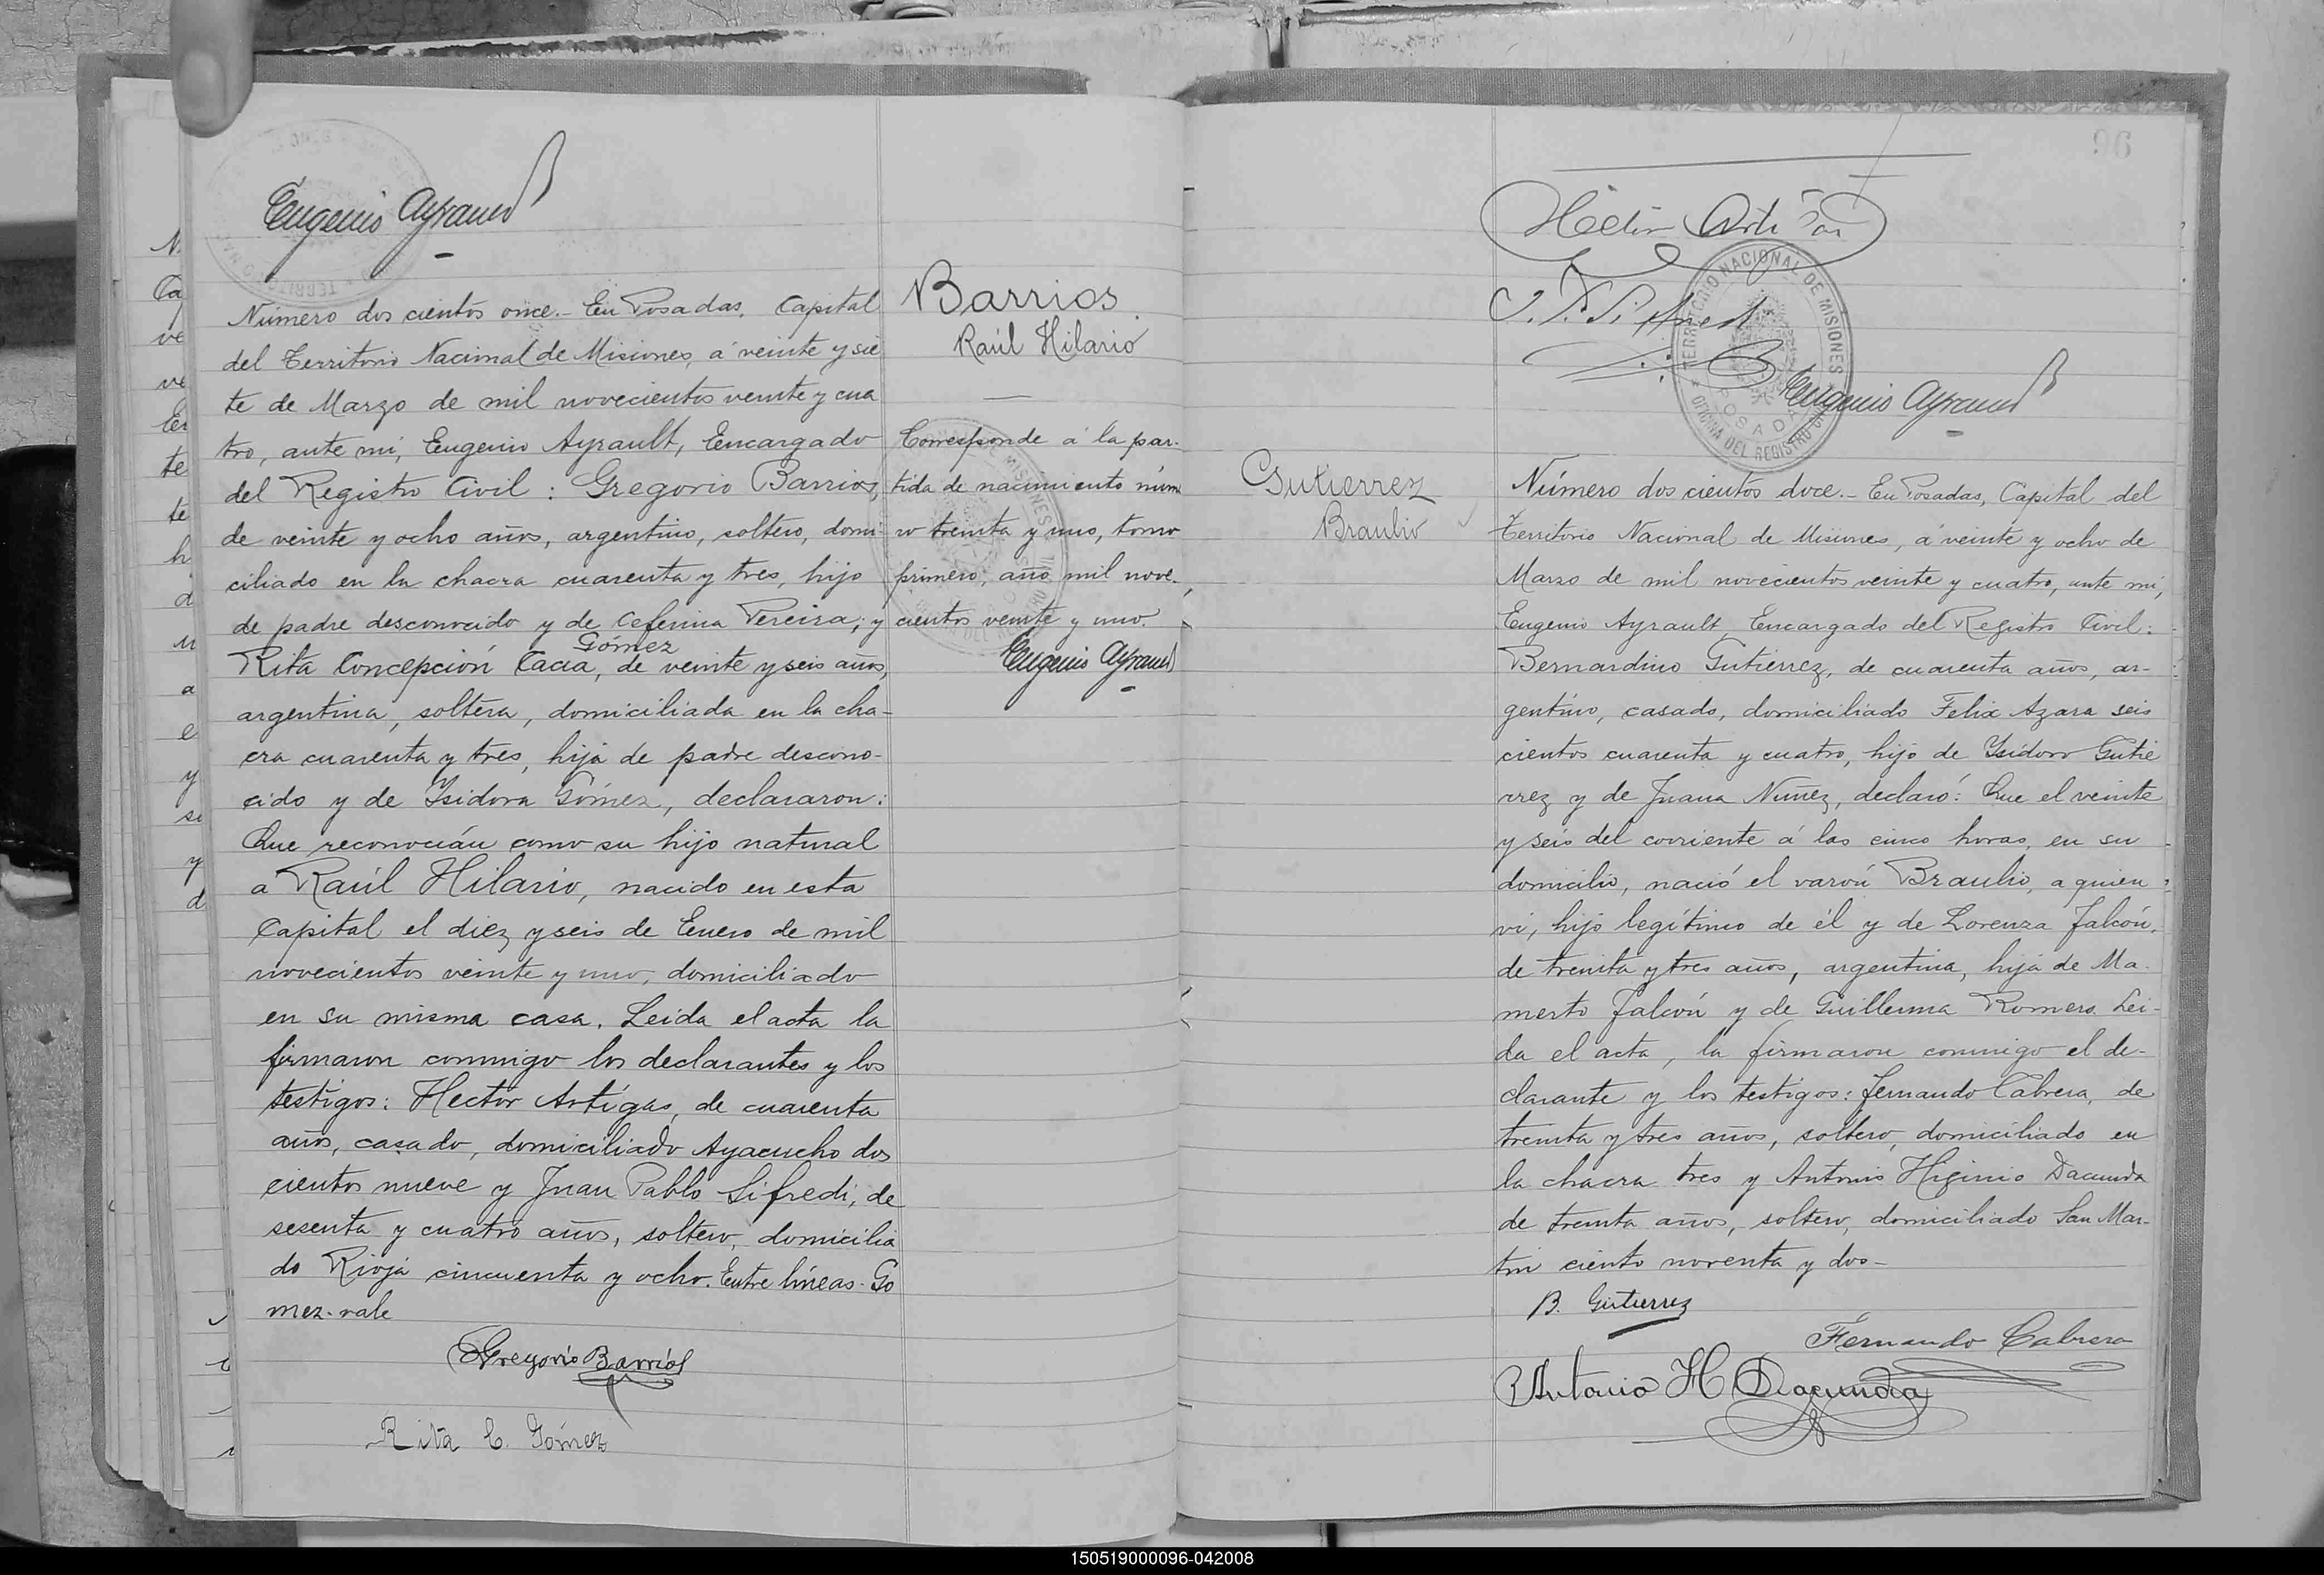 Eugenio Ayrault
Número dos cientos once.- En Posadas, Capital
del Territorio Nacional de Misiones, á veinte y sie
te de Marzo de mil novecientos veinte y cua
tro, ante mí, Eugenio Ayrault, Encargado
del Registro Civil: Gregorio Barrios,
de veinte y ocho años, argentino, soltero, domi
ciliado en la chacra cuarenta y tres, hijo
de padre desconocido y de Ceferina Pereira; y
Gómez
Rita Concepción Cacia, de veinte y seis años,
argentina, soltera, domiciliada en la cha-
cra cuarenta y tres, hija de padre descono-
cido y de Isidora Gómez, declararon:
Que reconocían como su hijo natural
a Raúl Hilario, nacido en esta
Capital el diez y seis de Enero de mil
novecientos veinte y uno, domiciliado
en su misma casa. Leida el acta la
firmaron conmigo los declarantes y los
testigos: Hector Artigas, de cuarenta
años, casado, domiciliado Ayacucho dos
cientos nueve y Juan Pablo Lifredi, de
sesenta y cuatro años, soltero, domicilia
do Rioja cincuenta y ocho. Entre líneas-Go
mez-vale
Gregorio Barrios
Rita C. Gómez
Barrios
Raúl Hilario
Corresponde á la par-
tida de nacimiento núme
ro treinta y uno, tomo
primero, año mil nove-
cientos veinte y uno.
Eugenio Ayrault
96
Héctor Artigas
TERRITORIO NACIONAL DE MISIONES
OFICINA DEL REGISTRO CIVIL
POSADAS
Eugenio Ayrault
Gutierrez
Braulio
Número dos cientos doce.- En Posadas, Capital del
Territorio Nacional de Misiones, á veinte y ocho de
Marzo de mil novecientos veinte y cuatro, ante mí,
Eugenio Ayrault Encargado del Registro Civil:
Bernardino Gutiérrez, de cuarenta años, ar-
gentino, casado, domiciliado Felix Azara seis
cientos cuarenta y cuatro, hijo de Isidoro Gutié
rrez y de Juana Nuñez, declaró: Que el veinte
y seis del corriente á las cinco horas, en su
domicilio, nació el varón Braulio, a quien
ví, hijo legítimo de él y de Lorenza Falcón,
de treinta y tres años, argentina, hija de Ma-
merto Falcón y de Guillerma Romero. Lei-
da el acta, la firmaron conmigo el de-
clarante y los testigos: Fernando Cabrera, de
treinta y tres años, soltero, domiciliado en
la chacra tres y Antonio Higinio Dacunda
de treinta años, soltero, domiciliado San Mar-
tin ciento noventa y dos-
B. Gutierrez
Fernando Cabrera
Antonio H Dacunda
150519000096-042008